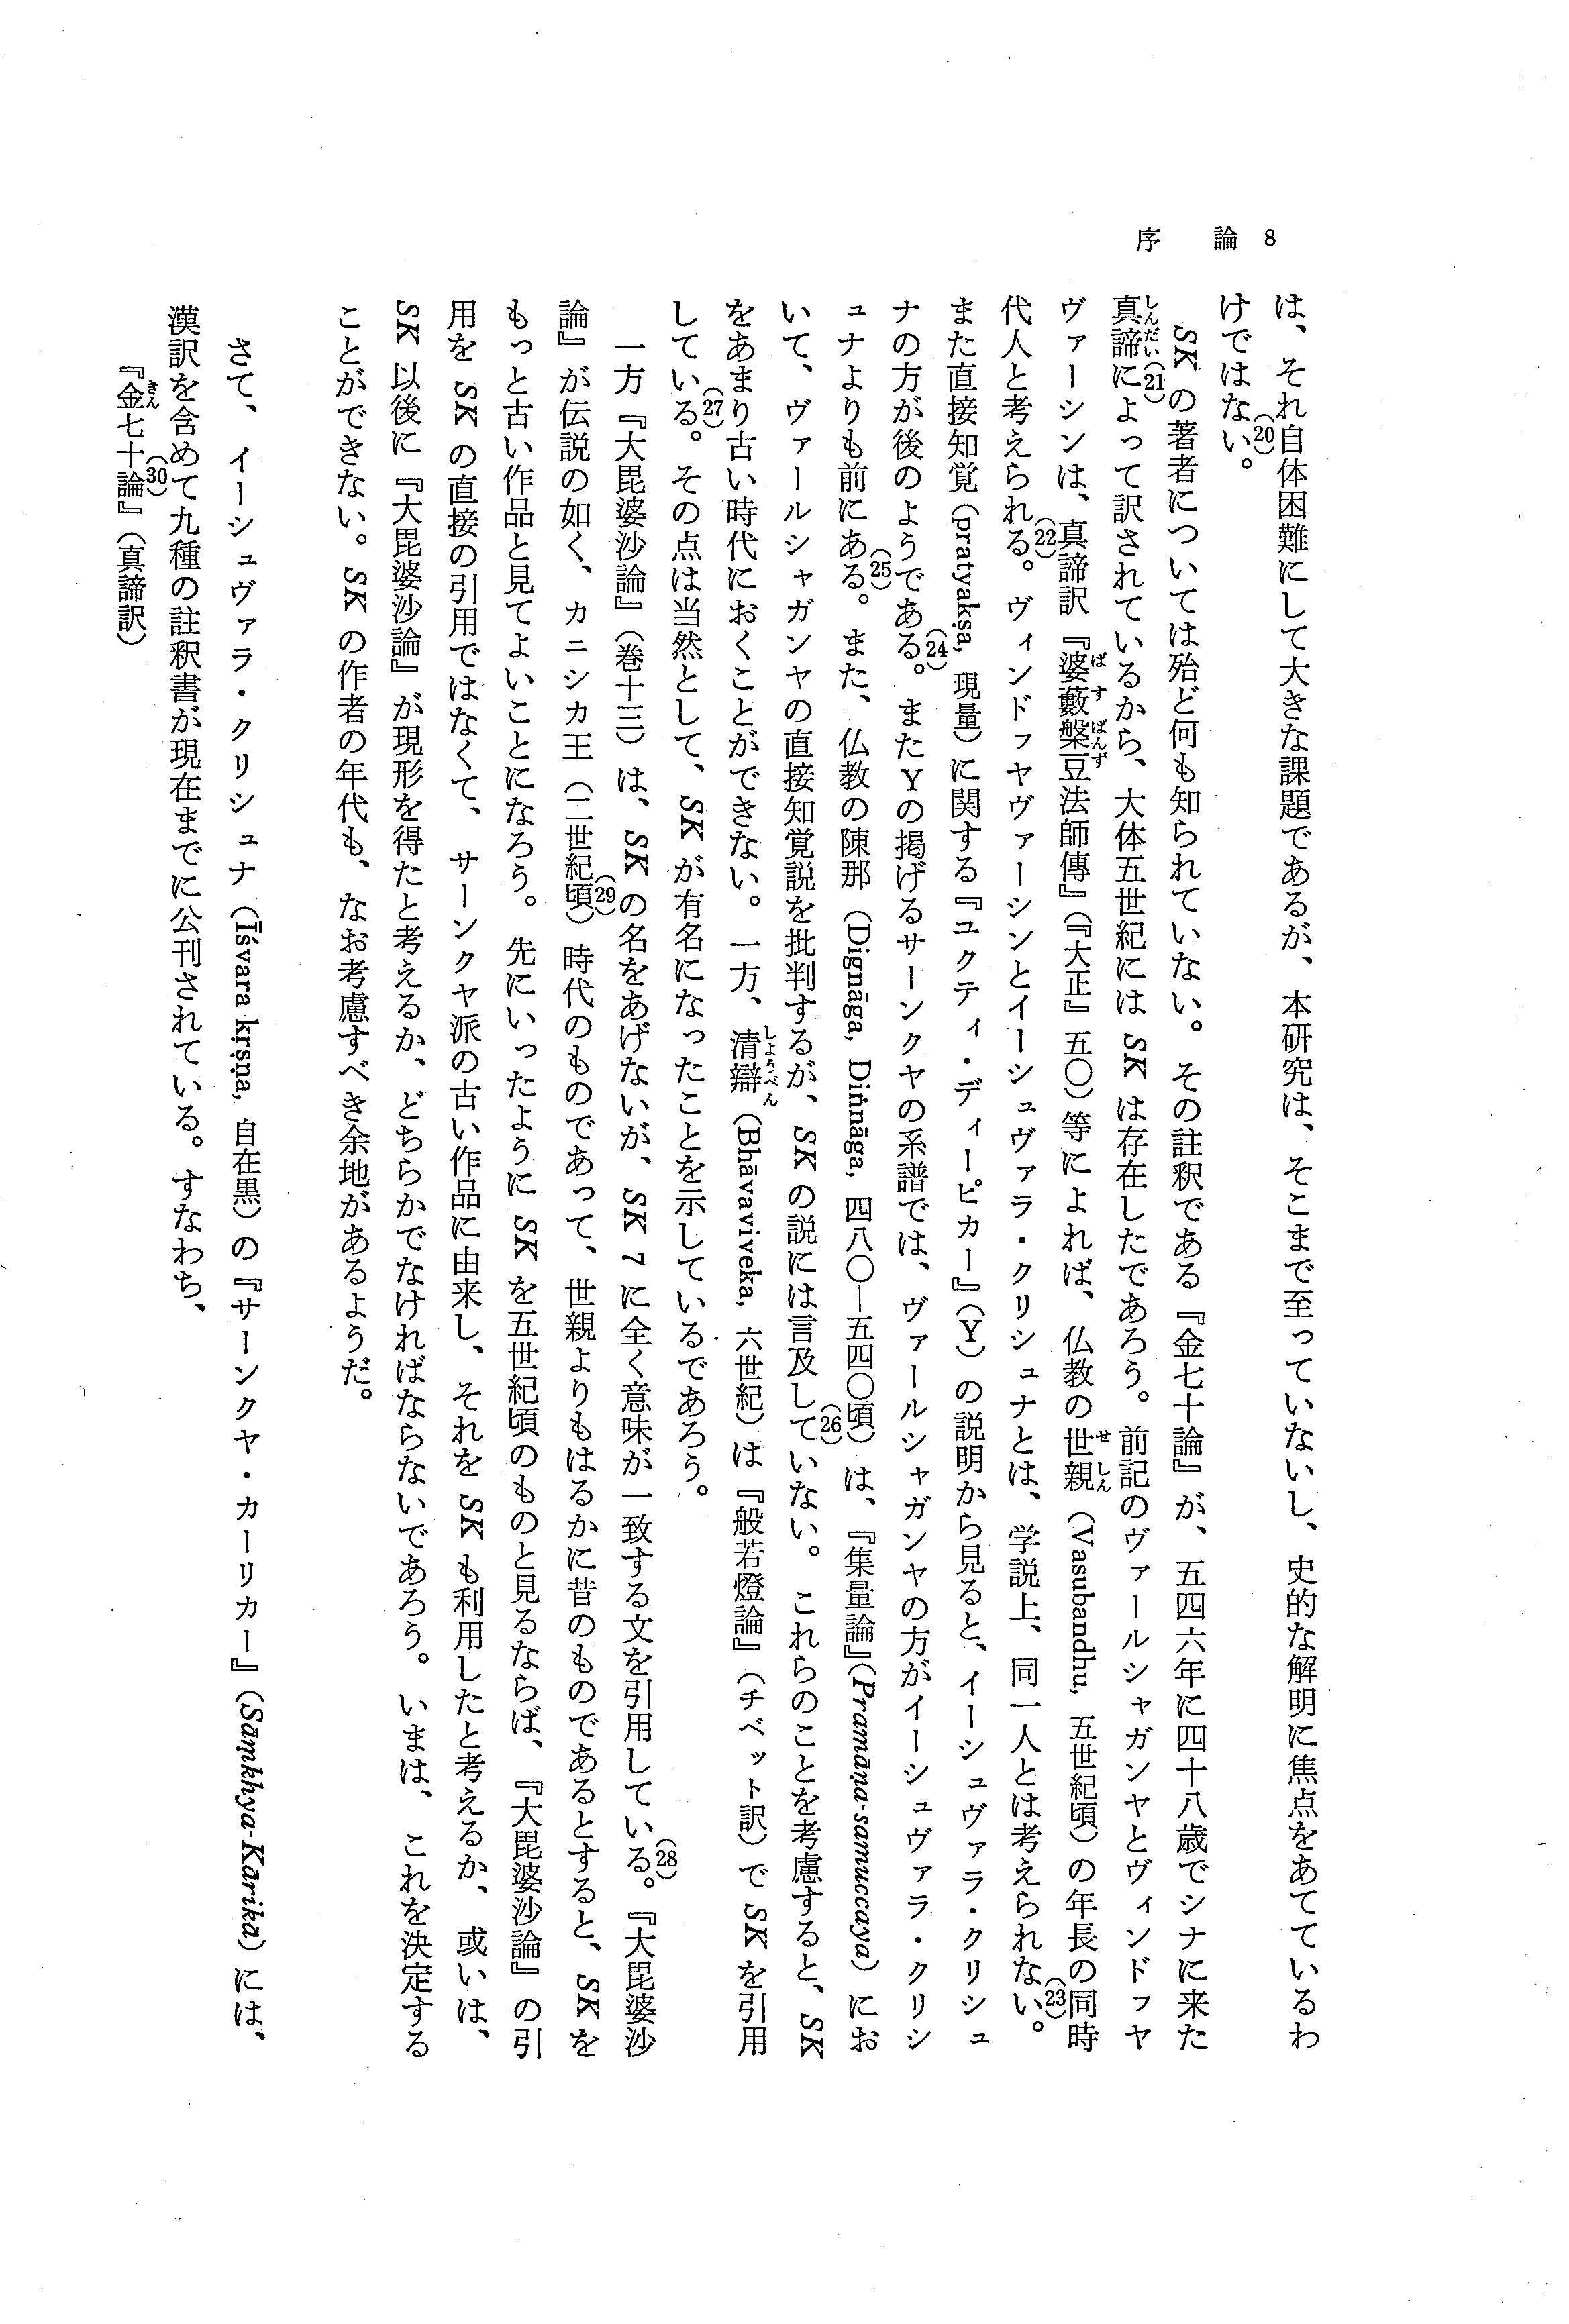 序論 8
は、それ自体困難にして大きな課題であるが、本研究は、そこまで至っていないし、史的な解明に焦点をあてているわ
けではない。(20)
SK の著者については殆ど何も知られていない。その註釈である『金七十論』が、五四六年に四十八歳でシナに来た
真諦(しんだい)によって(21)訳されているから、大体五世紀には SK は存在したであろう。前記のヴァールシャガンヤとヴィンドフヤ
ヴァーシンは、真諦訳『婆藪槃豆(ばすばんず)法師傳』(『大正』五〇)等によれば、仏教の世親(せしん)(Vasubandhu, 五世紀頃)の年長の同時
代人と考えられる。(22)ヴィンドフヤヴァーシンとイーシュヴァラ・クリシュナとは、学説上、同一人とは考えられない。(23)
また直接知覚(pratyakṣa, 現量)に関する『ユクティ・ディーピカー』(Y)の説明から見ると、イーシュヴァラ・クリシュ
ナの方が後のようである。(24)またYの掲げるサーンクヤの系譜では、ヴァールシャガンヤの方がイーシュヴァラ・クリシ
ュナよりも前にある。(25)また、仏教の陳那(Dignāga, Diṅnāga, 四八〇—五四〇頃)は、『集量論』(Pramāṇa-samuccaya)にお
いて、ヴァールシャガンヤの直接知覚説を批判するが、SK の説には言及していない。(26)これらのことを考慮すると、SK
をあまり古い時代におくことができない。一方、清辯(しようべん)(Bhāvaviveka, 六世紀)は『般若燈論』(チベット訳)で SK を引用
している。(27)その点は当然として、SK が有名になったことを示しているであろう。
一方『大毘婆沙論』(巻十三)は、SK の名をあげないが、SK 7 に全く意味が一致する文を引用している。(28)『大毘婆沙
論』が伝説の如く、カニシカ王(二世紀頃)(29)時代のものであって、世親よりもはるかに昔のものであるとすると、SK を
もっと古い作品と見てよいことになろう。先にいったように SK を五世紀頃のものと見るならば、『大毘婆沙論』の引
用を SK の直接の引用ではなくて、サーンクヤ派の古い作品に由来し、それを SK も利用したと考えるか、或いは、
SK 以後に『大毘婆沙論』が現形を得たと考えるか、どちらかでなければならないであろう。いまは、これを決定する
ことができない。SK の作者の年代も、なお考慮すべき余地があるようだ。
さて、イーシュヴァラ・クリシュナ(Īśvara kṛṣṇa, 自在黒)の『サーンクヤ・カーリカー』(Sāṃkhya-Kārikā)には、
漢訳を含めて九種の註釈書が現在までに公刊されている。すなわち、
『金(きん)七十論』(30)(真諦訳)